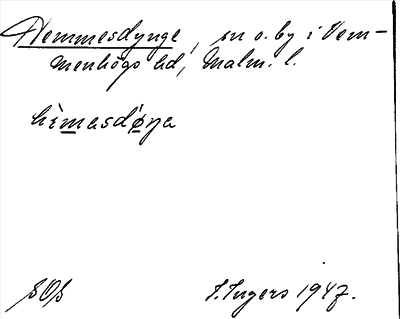 Hemmesdynge, sn o. by i Vem-
menhögs hd, Malm. l.
hèmasdǿŋa
SOß
I. Ingers 1947.